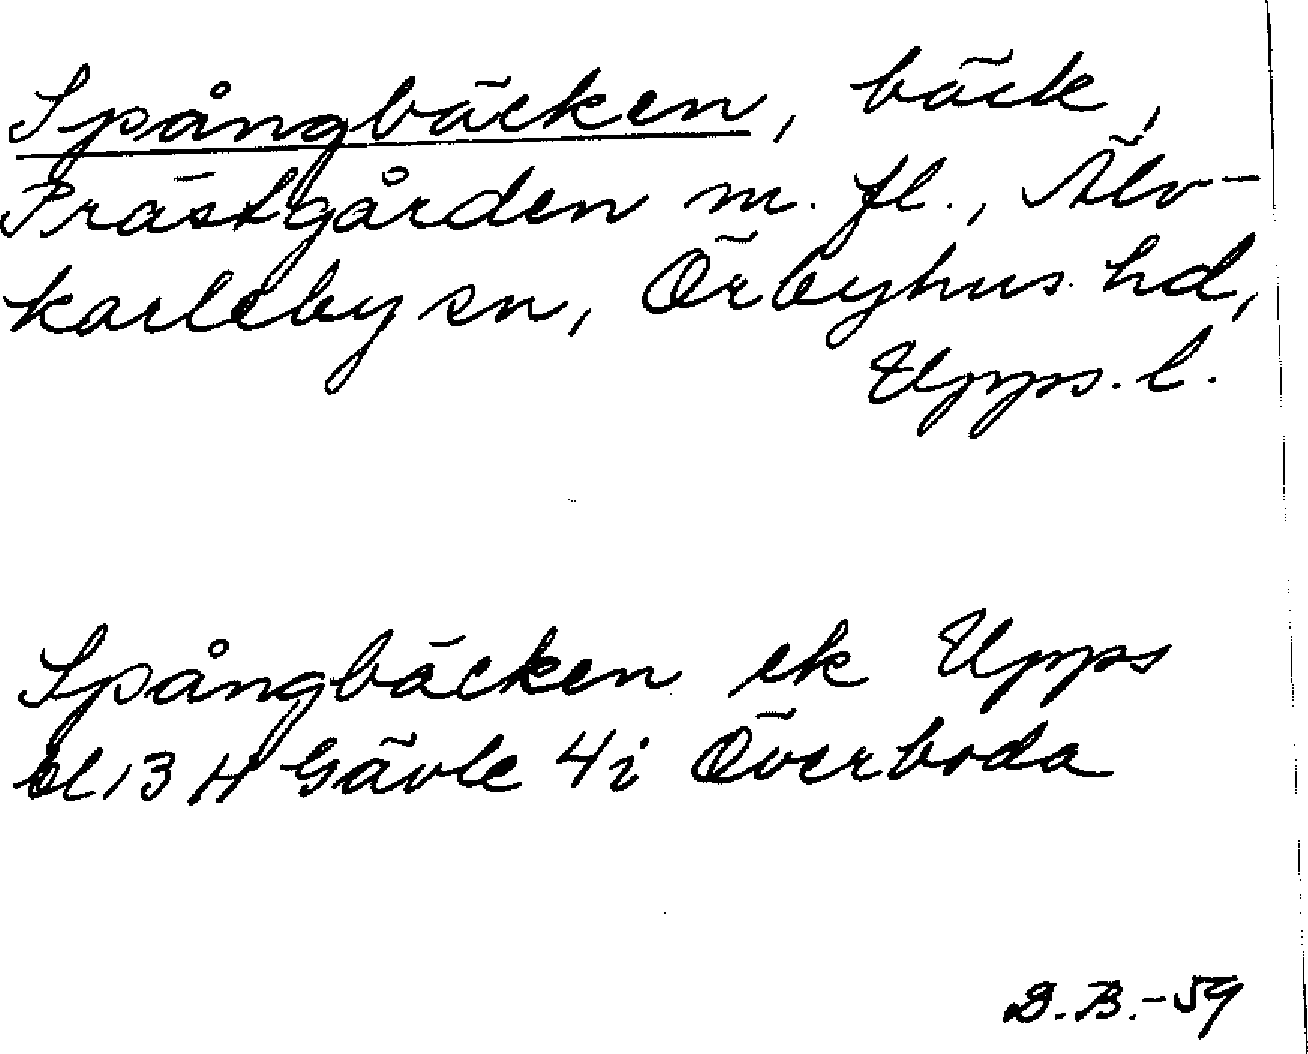 Spångbäcken, bäck,
Prästgården m. fl., Älv-
karleby sn, Örbyhus hd,
Upps. l.
Spångbäcken ek Upps
bl 13 H Gävle 4i Överboda
B.B.-59